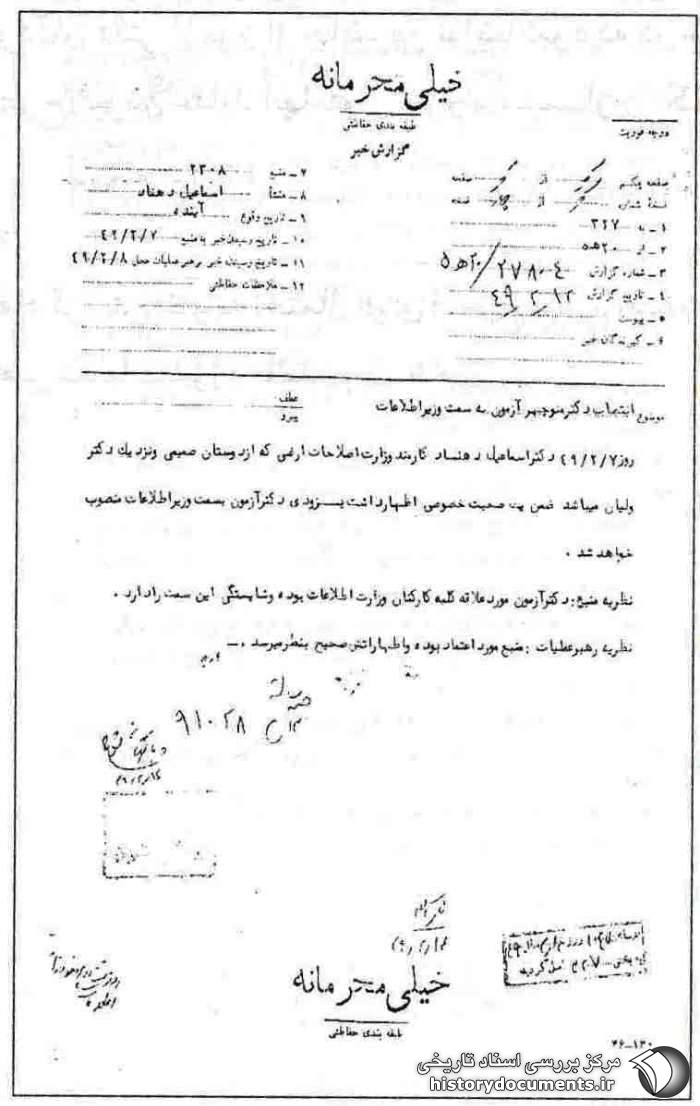 خیلی محرمانه
طبقه بندی حفاظتی
درجه فوریت
گزارش خبر
صفحه یکم از صفحه
نسخه شماره از نسخه
۱ ـ به ۳۲۷
۲ ـ از ۲۰ ه ۵
۳ ـ شماره گزارش ۲۷۸۰۴ / ۲۰ ه ۵
٤ ـ تاریخ گزارش ۴۹/۲/۱۲
۵ ـ پیوست
۶ ـ گیرندگان خبر
۷ ـ منبع ۲۳۰۸
۸ ـ منشأ اسماعیل دهناد
۹ ـ تاریخ وقوع آینده
۱۰ ـ تاریخ رسیدن خبر به منبع ۴۹/۲/۷
۱۱ ـ تاریخ رسیدن خبر به رهبر عملیات محل ۴۹/۲/۸
۱۲ ـ ملاحظات حفاظتی
موضوع انتصاب دکتر منوچهر آزمون به سمت وزیر اطلاعات
عطف
پیرو
روز ۴۹/۲/۷ دکتر اسماعیل دهناد کارمند وزارت اصلاحات ارضی که از دوستان صمیمی و نزدیک دکتر
ولیان میباشد ضمن یک صحبت خصوصی اظهار داشت بزودی دکتر آزمون بسمت وزیر اطلاعات منصوب
خواهد شد .
نظریه منبع : دکتر آزمون مورد علاقه کلیه کارکنان وزارت اطلاعات بوده و شایستگی این سمت را دارد .
نظریه رهبر عملیات : منبع مورد اعتماد بوده و اظهاراتش صحیح بنظر میرسد .ـ
۹۱۰۲۸
خیلی محرمانه
طبقه بندی حفاظتی
۴۶ـ۱۳۰
مرکز بررسی اسناد تاریخی
historydocuments.ir